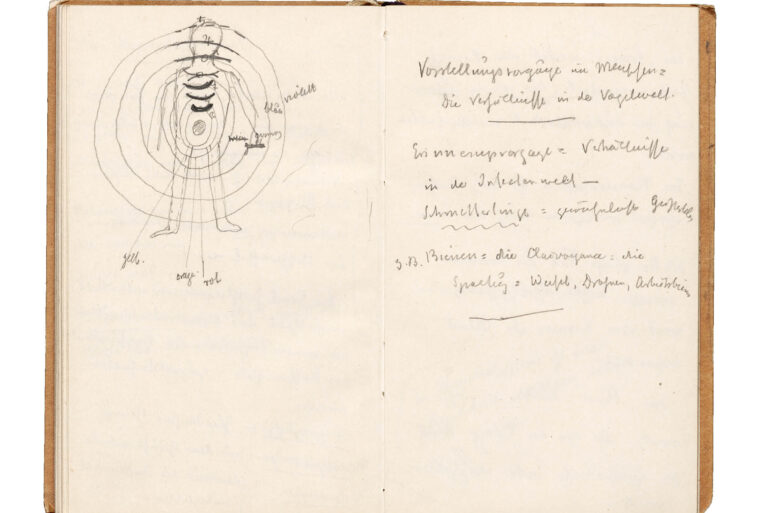 violett
blau
grün
gelb.
orange
rot
Vorstellungsvorgänge im Menschen =
Die Verhältnisse in der Vogelwelt.
Erinnerungsvorgänge = Verhältnisse
in der Insectenwelt —
Schmetterlinge =
z.B. Bienen = die Clairvoyance: die
= Weisel, Drohnen, Arbeitsbienen